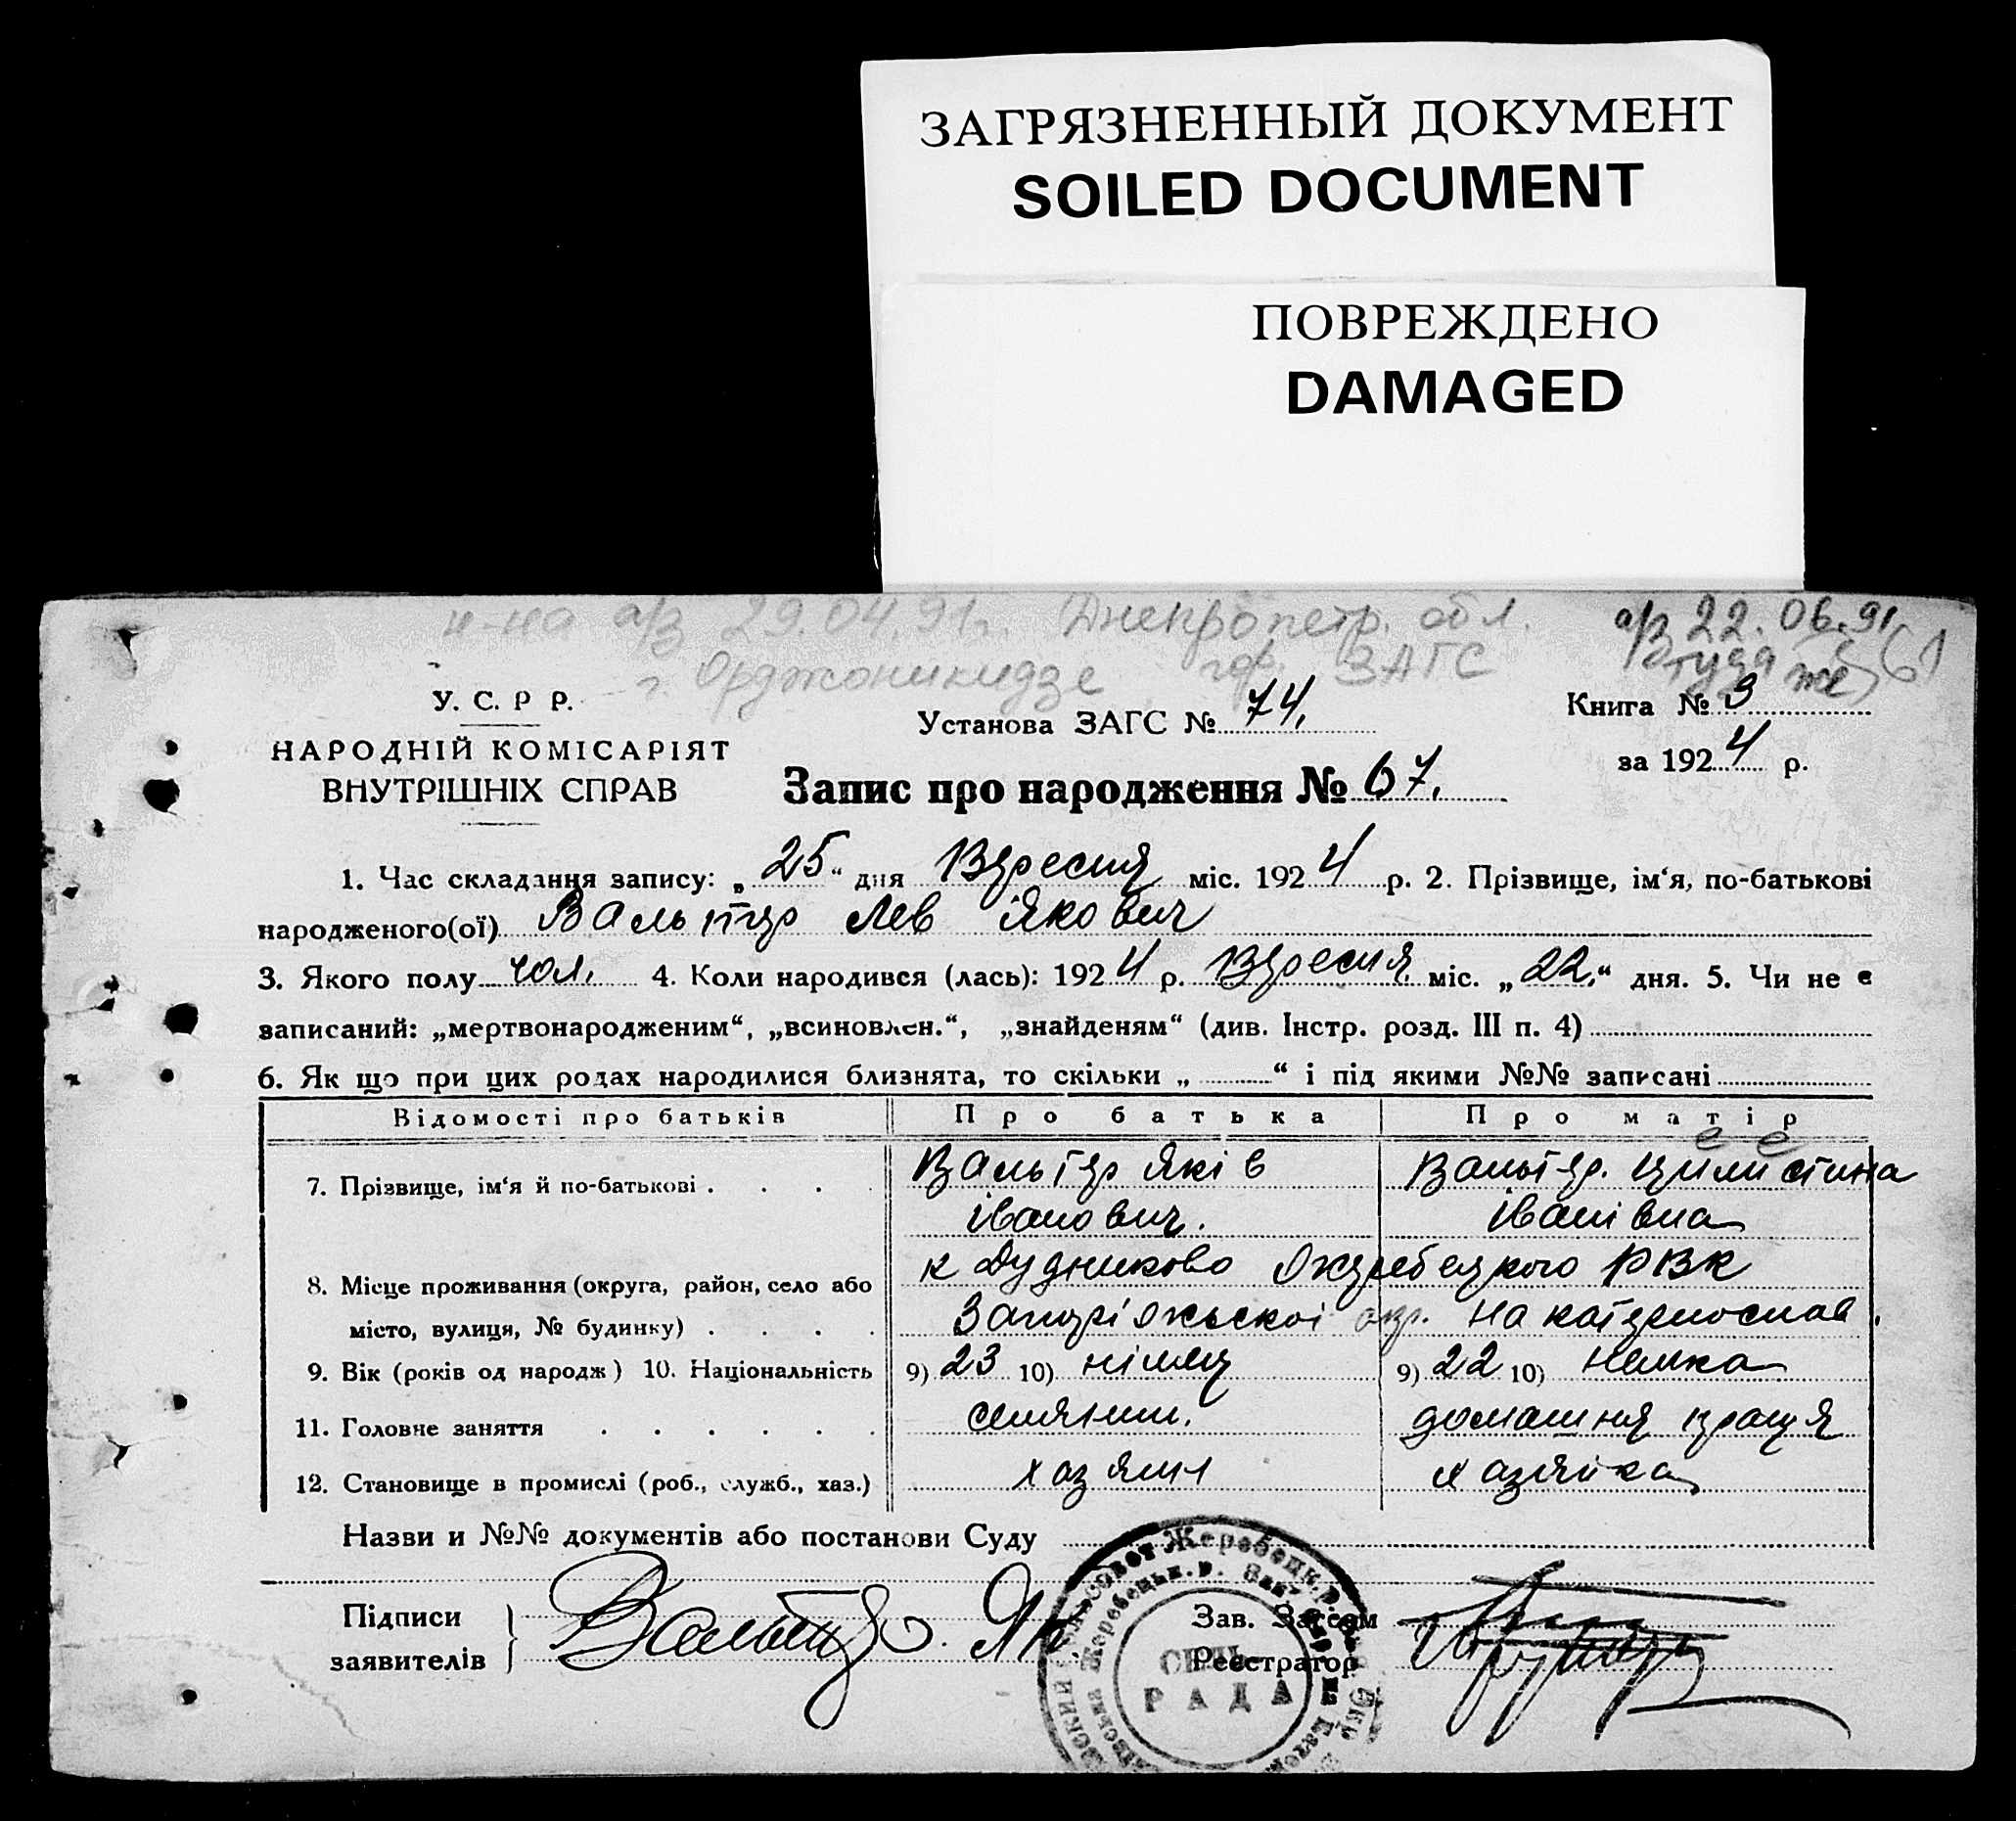 ЗАГРЯЗНЕННЫЙ ДОКУМЕНТ
SOILED DOCUMENT
ПОВРЕЖДЕНО
DAMAGED
29.04.91г. Днепропетр. обл. а/з 22.06.91
г. Орджоникидзе гор. ЗАГС туда же
У. С. Р Р.
Установа ЗАГС № 74.
Книга № 3
НАРОДНІЙ КОМІСАРІЯТ
за 1924 р.
ВНУТРІШНІХ СПРАВ
Запис про народження № 67.
1. Час складання запису: „25“ дня Вересня міс. 1924 р. 2. Прізвище, ім‘я, по-батькові
народженого(ої) Вальтер Лев Якович
3. Якого полу чол. 4. Коли народився (лась): 1924 р. Вересня міс. „22.“ дня. 5. Чи не є
записаний: „мертвонародженим“, „всиновлен.“, „знайденям“ (див. Інстр. розд. III п. 4)
6. Як що при цих родах народилися близнята, то скільки „ “ і під якими №№ записані
Відомості про батьків Про батька Про матір
7. Прізвище, ім‘я й по-батькові . . . . Вальтер Яків Вальтер. Целестина
Іванович. Іванівна
к Дудниково Жеребецкого РВК
8. Місце проживання (округа, район, село або
місто, вулиця, № будинку) . . . . Запоріжьскої окр. на катеринослав.
9. Вік (років од народж) 10. Національність 9) 23 10) німец 9) 22 10) немка
11. Головне заняття . . . . . . селянин. домашня праця
12. Становище в промислі (роб., служб., хаз.) хазяин хазяйка
Назви и №№ документів або постанови Суду
Підписи
заявителів
Вальтер. Як.
Зав. Загсом
Реєстратор
Жеребецьк. р.
РАДА